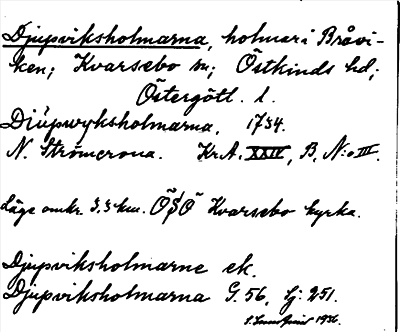 Djupviksholmarna, holmar i Bråvi-
ken; Kvarsebo sn; Östkinds hd;
Östergötl. l.
Diüpwyksholmarna. 1734.
N. Strömcrona. Kr.A. XXIV, B, N:o III.
Läge omkr. 3.5 km. ÖSÖ Kvarsebo kyrka.
Djupviksholmarne ek.
Djupviksholmarna G. 56, Lj: 251.
1936.